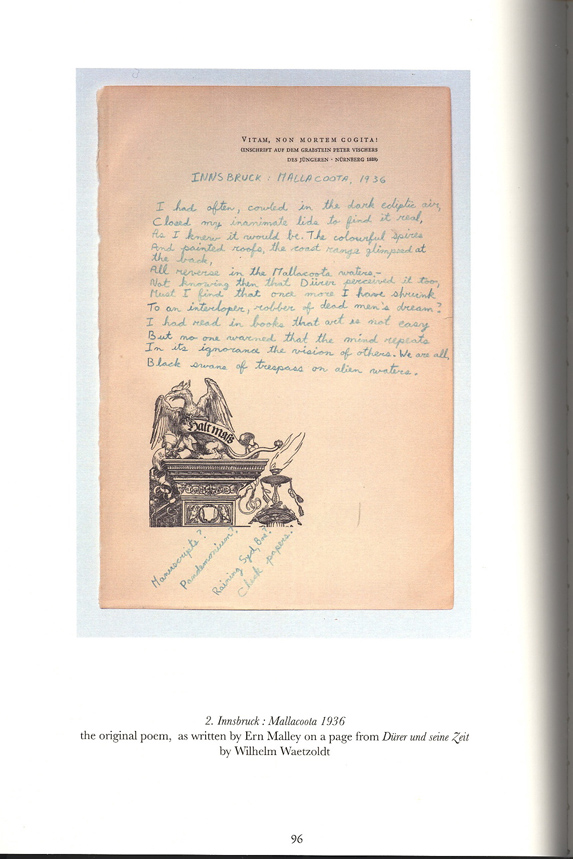 VITAM, NON MORTEM COGITA!
(INSCHRIFT AUF DEM GRABSTEIN PETER VISCHERS
DES JÜNGEREN · NÜRNBERG
INNSBRUCK : MALLACOOTA, 1936
I had often, cowled in the dark ecliptic air,
Closed my inanimate lids to find it real,
As I knew it would be. The colourful Spires
And painted roofs, the coast range glimpsed at
the back,
All reverse in the Mallacoota waters,-
Not knowing then that Dürer perceived it too,
Must I find that once more I have shrunk
To an interloper, robber of dead men's dream?
I had read in books that art is not easy
But no one warned that the mind repeats
In its ignorance the vision of others. We are all,
Black swans of trespass on alien waters.
Halt maß
Manuscripts?
Pandemonium?
Raining Syd, But?
Check papers.
2. Innsbruck : Mallacoota 1936
the original poem, as written by Ern Malley on a page from Dürer und seine Zeit
by Wilhelm Waetzoldt
96